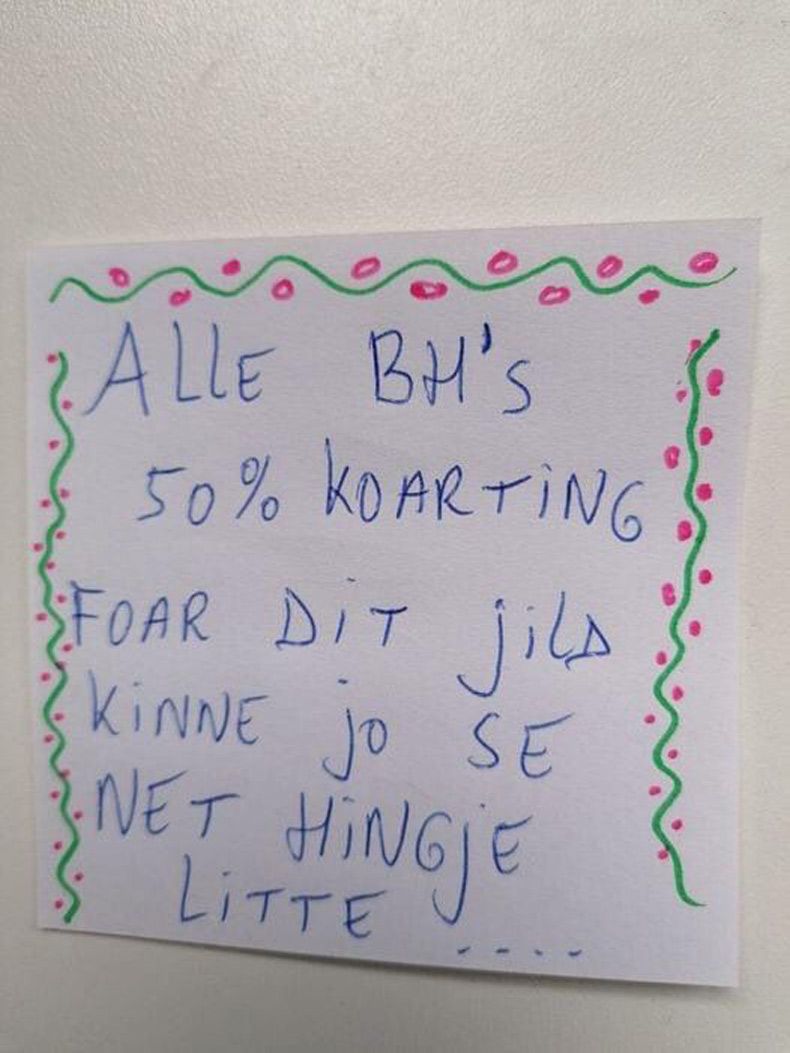 ALLE BH's
50% KOARTING
FOAR DIT jILD
KINNE jo SE
NET HINGjE
LITTE ....